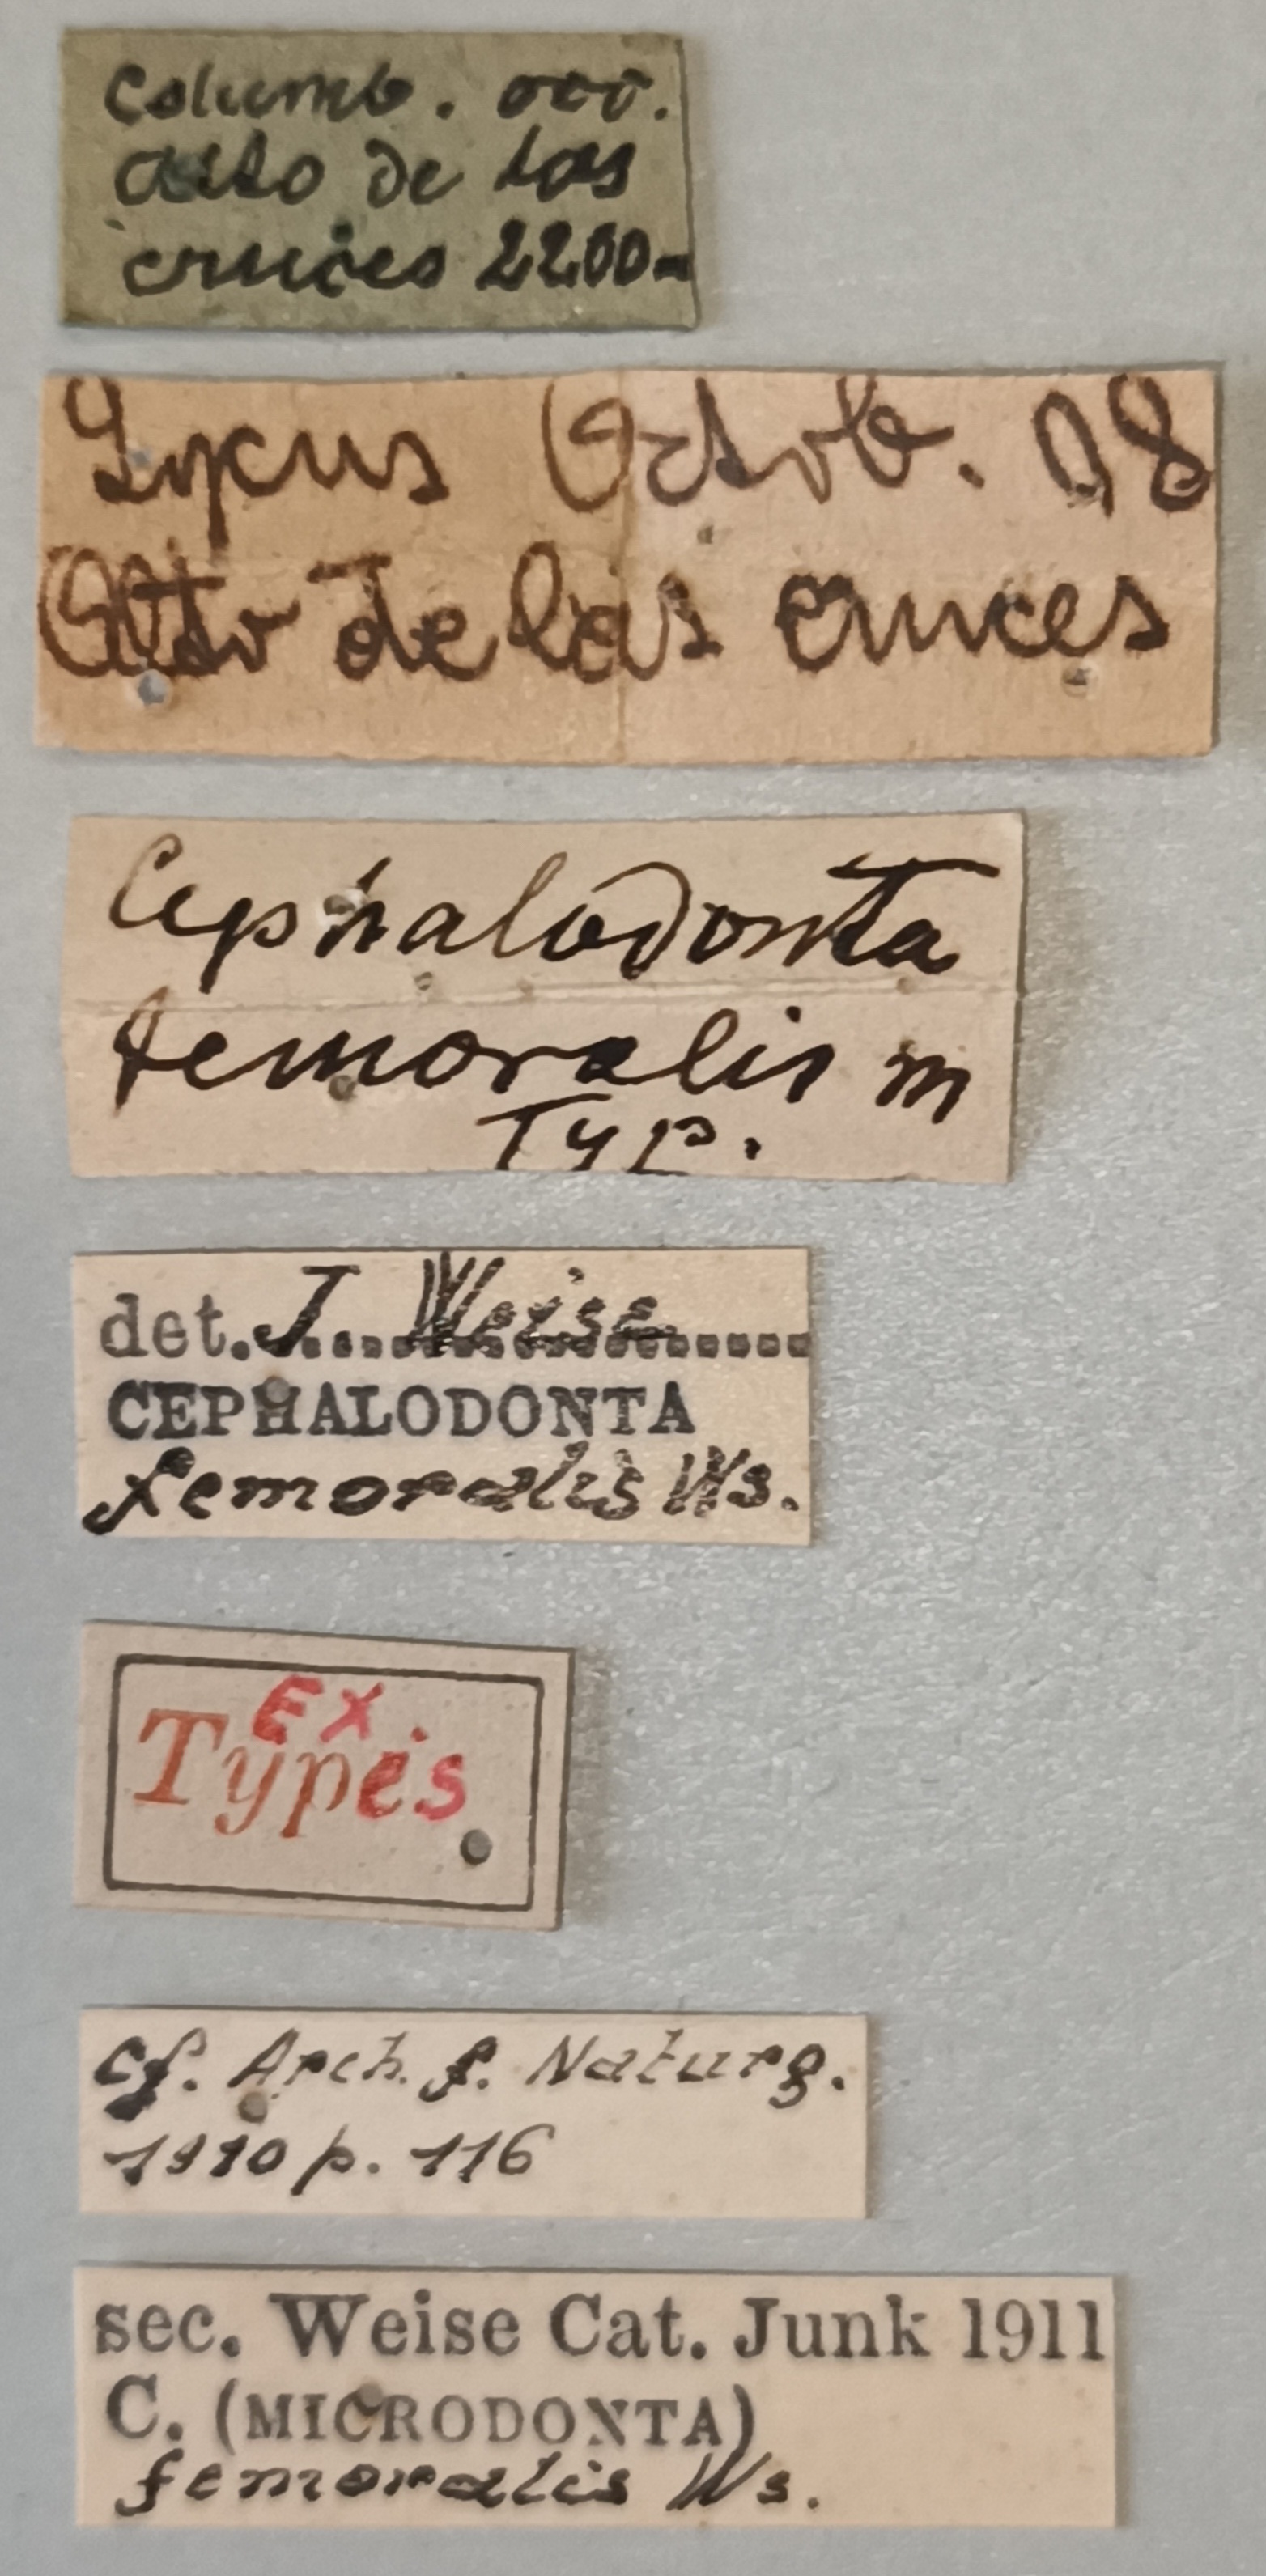 Columb. occ.
alto de las
cruces 2200-
Lycus Octob. 98
Alto de las cruces
Cephalodonta
femoralis m
Typ.
det. J. Weise
CEPHALODONTA
femoralis Ws.
EX
Types
cf. Arch. f. Naturg.
1910 p. 116
sec. Weise Cat. Junk 1911
C. (MICRODONTA)
femoralis Ws.